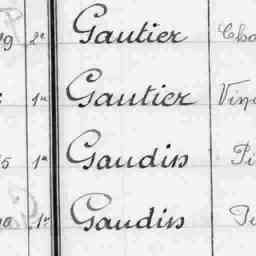 9 2e Gautier Cha
1re Gautier Vin
5 1re Gaudin Pi
1re Gaudin